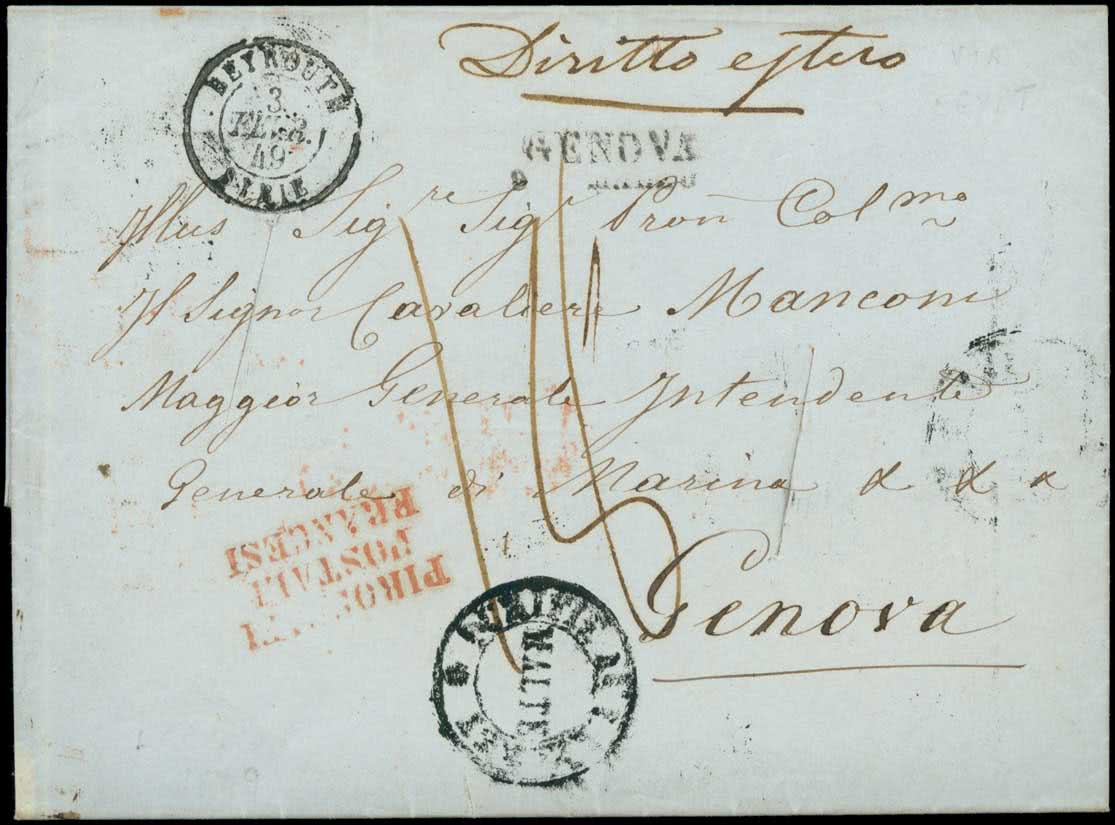 Diritto estero
BEYROUTH
3
FEVR.
49
SYRIE
GENOVA
Illus Sigre Sigr Pron Colmo
Il Signor Cavaliere Manconi
Maggior Generale Intendente
Generale di Marina & & &
Genova
PIROSCAFI
POSTALI
FRANCESI
MALTE